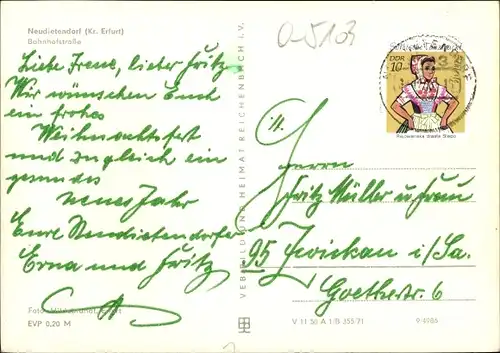 Neudietendorf (Kr. Erfurt)
Bahnhofstraße
0-5103
Liebe Irene, lieber Fritz
Wir wünschen Euch
ein frohes
Weihnachtsfest
und zugleich ein
gesundes
neues Jahr
Eure Neudietendorfer
Erna und Fritz
EVP 0,20 M
VERBILDUNG HEIMAT REICHENBACH i. V.
DDR
10
Herrn
Fritz Müller u. Frau
95 Zwickau i/Sa.
Goethestr. 6
V 11 50 A 1/B 355/71